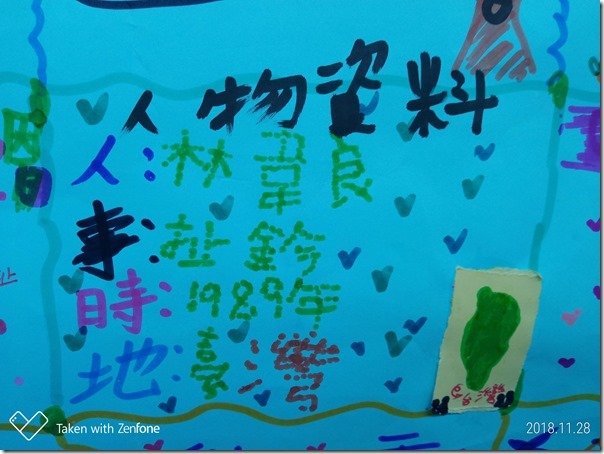 人物資料
人：林韋良
事：扯鈴
時：1989年
地：臺灣
Taken with Zenfone
2018.11.28